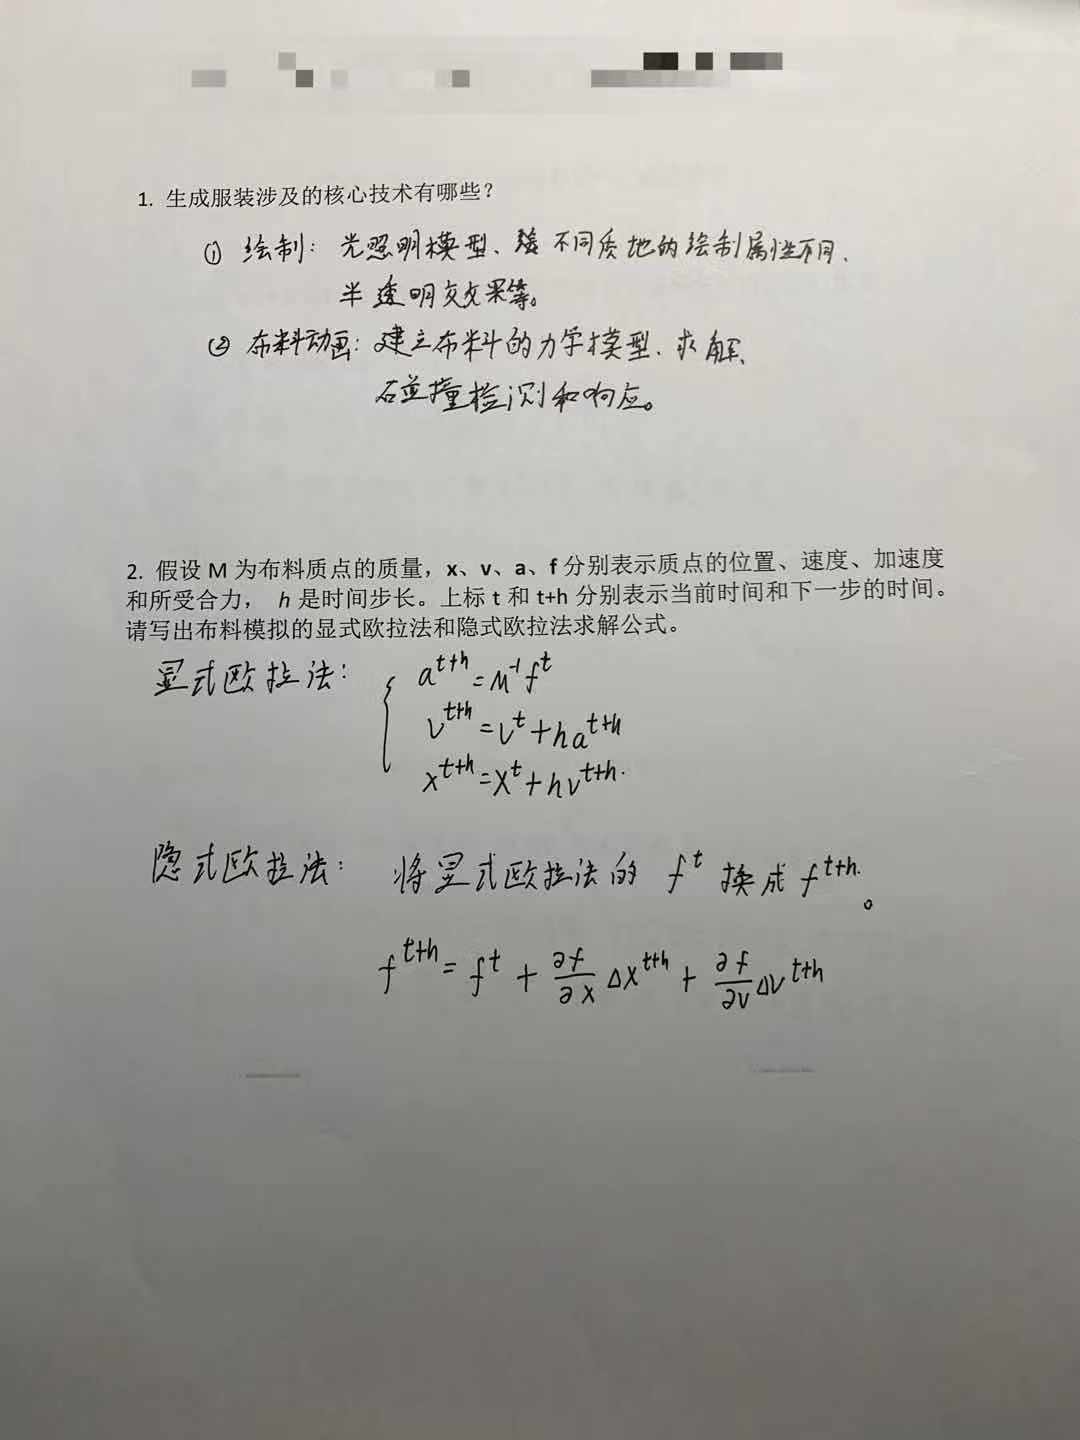 1. 生成服装涉及的核心技术有哪些？
① 绘制：光照明模型、不同质地的绘制属性不同、
半透明效果等。
② 布料动画：建立布料的力学模型、求解、
碰撞检测和响应。
2. 假设 M 为布料质点的质量，x、v、a、f 分别表示质点的位置、速度、加速度
和所受合力， h 是时间步长。上标 t 和 t+h 分别表示当前时间和下一步的时间。
请写出布料模拟的显式欧拉法和隐式欧拉法求解公式。
显式欧拉法： { a^{t+h} = M^{-1} f^t
v^{t+h} = v^t + h a^{t+h}
x^{t+h} = x^t + h v^{t+h}.
隐式欧拉法： 将显式欧拉法的 f^t 换成 f^{t+h}。
f^{t+h} = f^t + ∂f/∂x Δx^{t+h} + ∂f/∂v Δv^{t+h}